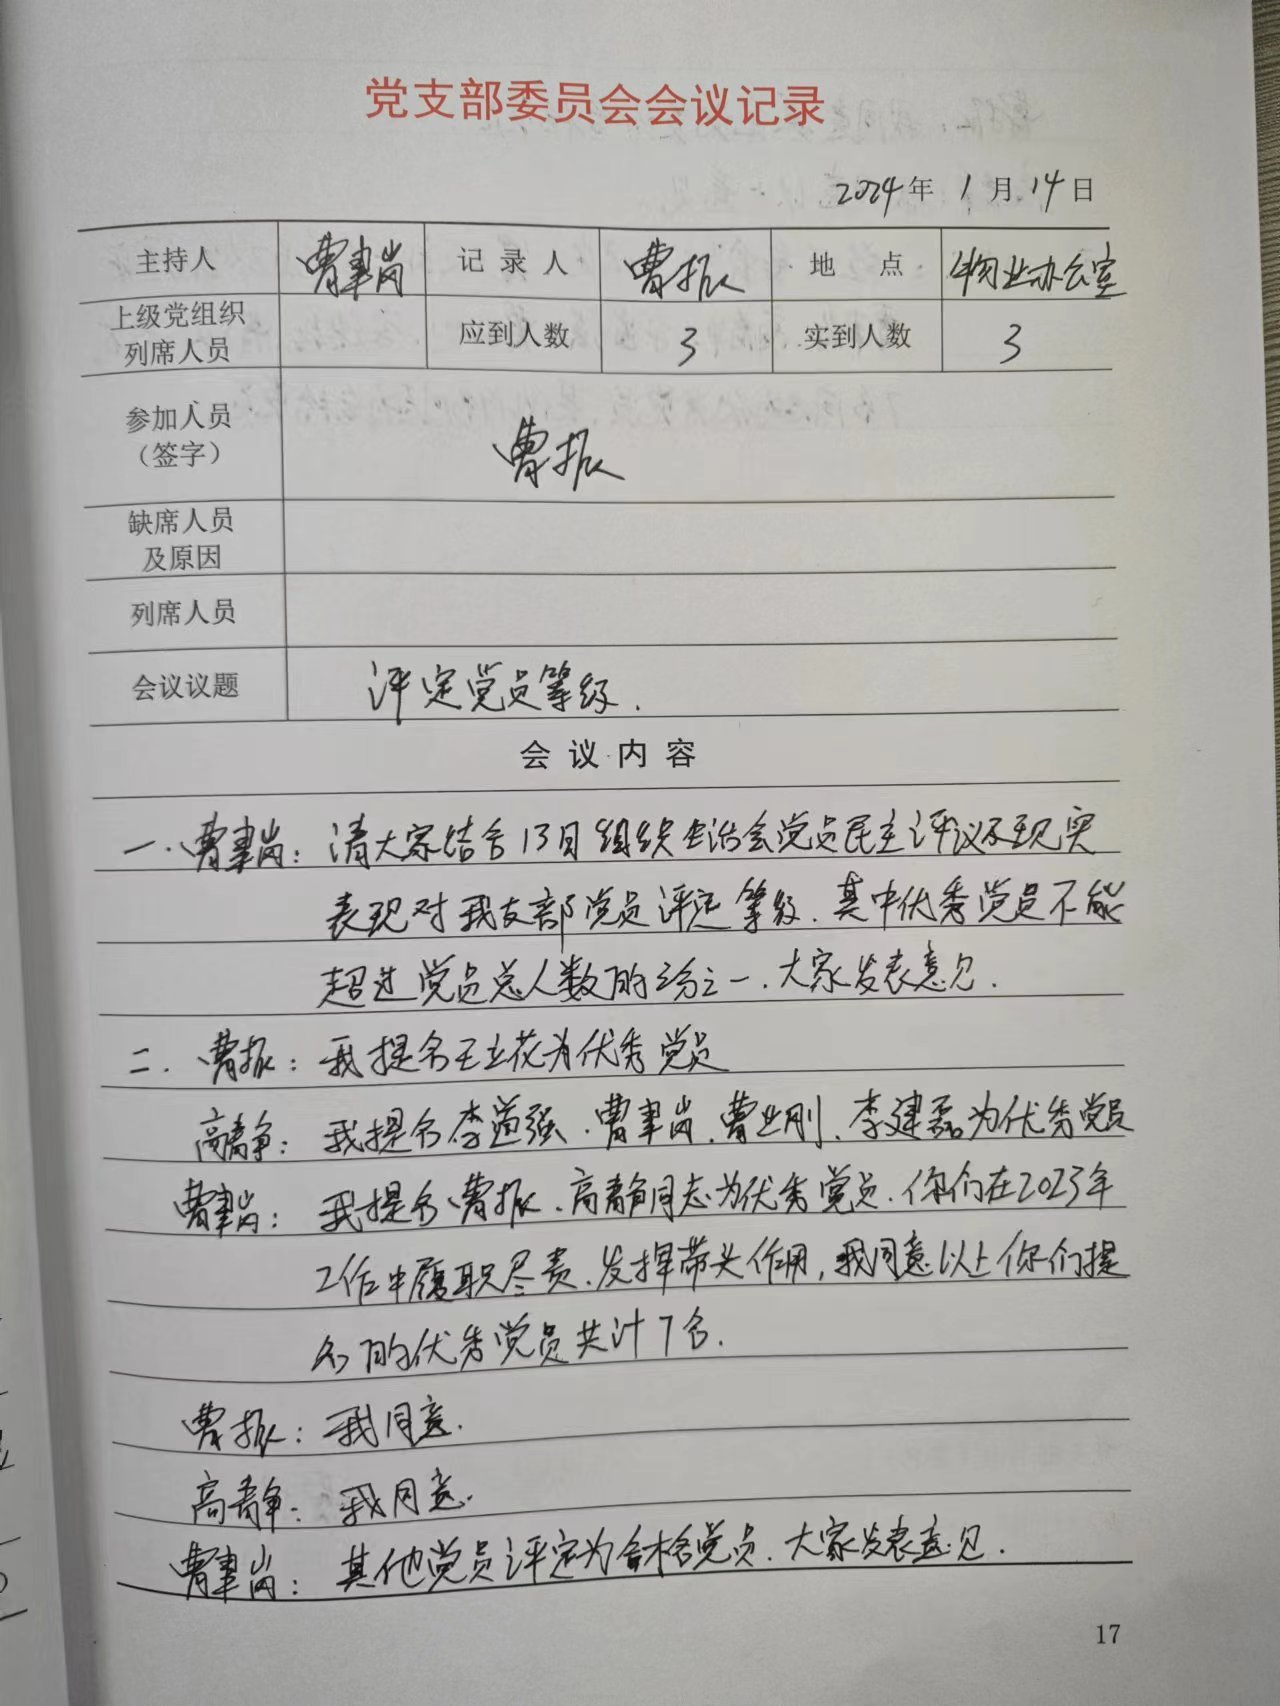 党支部委员会会议记录
2024年 1月 14日
主持人 曹聿岗 记录人 曹振 地点 物业办公室
上级党组织
列席人员 应到人数 3 实到人数 3
参加人员
(签字) 曹振
缺席人员
及原因
列席人员
会议议题 评定党员等级.
会议内容
一.曹聿岗: 请大家结合13日组织生活会党员民主评议及现实
表现对我支部党员评定等级.其中优秀党员不能
超过党员总人数的三分之一.大家发表意见.
二.曹振: 我提名王立花为优秀党员
高静: 我提名李道强.曹聿岗.曹业刚.李建磊为优秀党员
曹聿岗: 我提名曹振.高静同志为优秀党员.你们在2023年
工作中履职尽责.发挥带头作用,我同意以上你们提
名的优秀党员共计7名.
曹振: 我同意.
高静: 我同意.
曹聿岗: 其他党员评定为合格党员.大家发表意见.
17